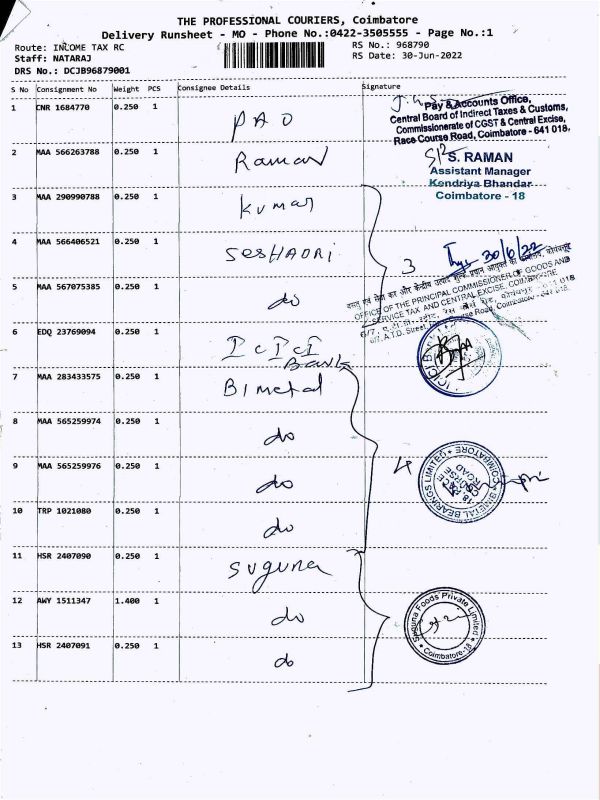 THE PROFESSIONAL COURIERS, Coimbatore
Delivery Runsheet - MO - Phone No.:0422-3505555 - Page No.:1
Route: INCOME TAX RC
RS No.: 968790
Staff: NATARAJ
RS Date: 30-Jun-2022
DRS No.: DCJB96879001
S No Consignment No Weight PCS Consignee Details Signature
1 CNR 1684770 0.250 1 PAO
Pay & Accounts Office,
Central Board of Indirect Taxes & Customs,
Commissionerate of CGST & Central Excise,
Race Course Road, Coimbatore - 641 018.
2 MAA 566263788 0.250 1 Raman
S. RAMAN
Assistant Manager
Kendriya Bhandar
Coimbatore - 18
3 MAA 290990788 0.250 1 Kumar
4 MAA 566406521 0.250 1 SESHADRI
3 30/6/22
OFFICE OF THE PRINCIPAL COMMISSIONER OF GOODS AND
SERVICE TAX AND CENTRAL EXCISE, COIMBATORE
6/7, A.T.D. Street, Race Course Road, Coimbatore - 641 018.
5 MAA 567075385 0.250 1 do
6 EDQ 23769094 0.250 1 ICICI
Bank
7 MAA 283433575 0.250 1 Bimetal
8 MAA 565259974 0.250 1 do
9 MAA 565259976 0.250 1 do
4
BIMETAL BEARINGS LIMITED
COIMBATORE
18 RACE
COURSE
ROAD
10 TRP 1021080 0.250 1 do
11 HSR 2407090 0.250 1 Suguna
12 AWY 1511347 1.400 1 do
Suguna Foods Private Limited
Coimbatore-18
13 HSR 2407091 0.250 1 do